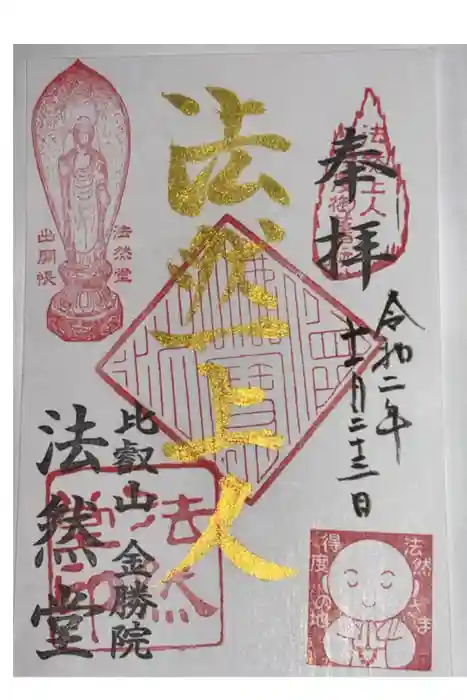 奉拝
法然上人
令和二年
十一月二十三日
法然上人
比叡山 金勝院
法然堂
法然堂
出開帳
法然堂印
法然さま
得度の地